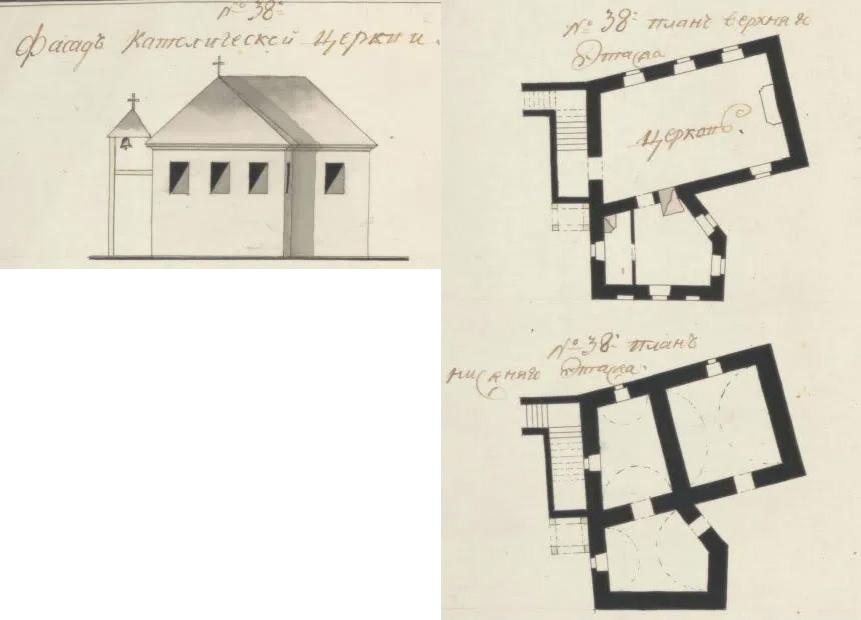 № 38й
фасадъ католической церкви.
№ 38й планъ верхняго
этажа
церковь.
№ 38й планъ
нижняго этажа.